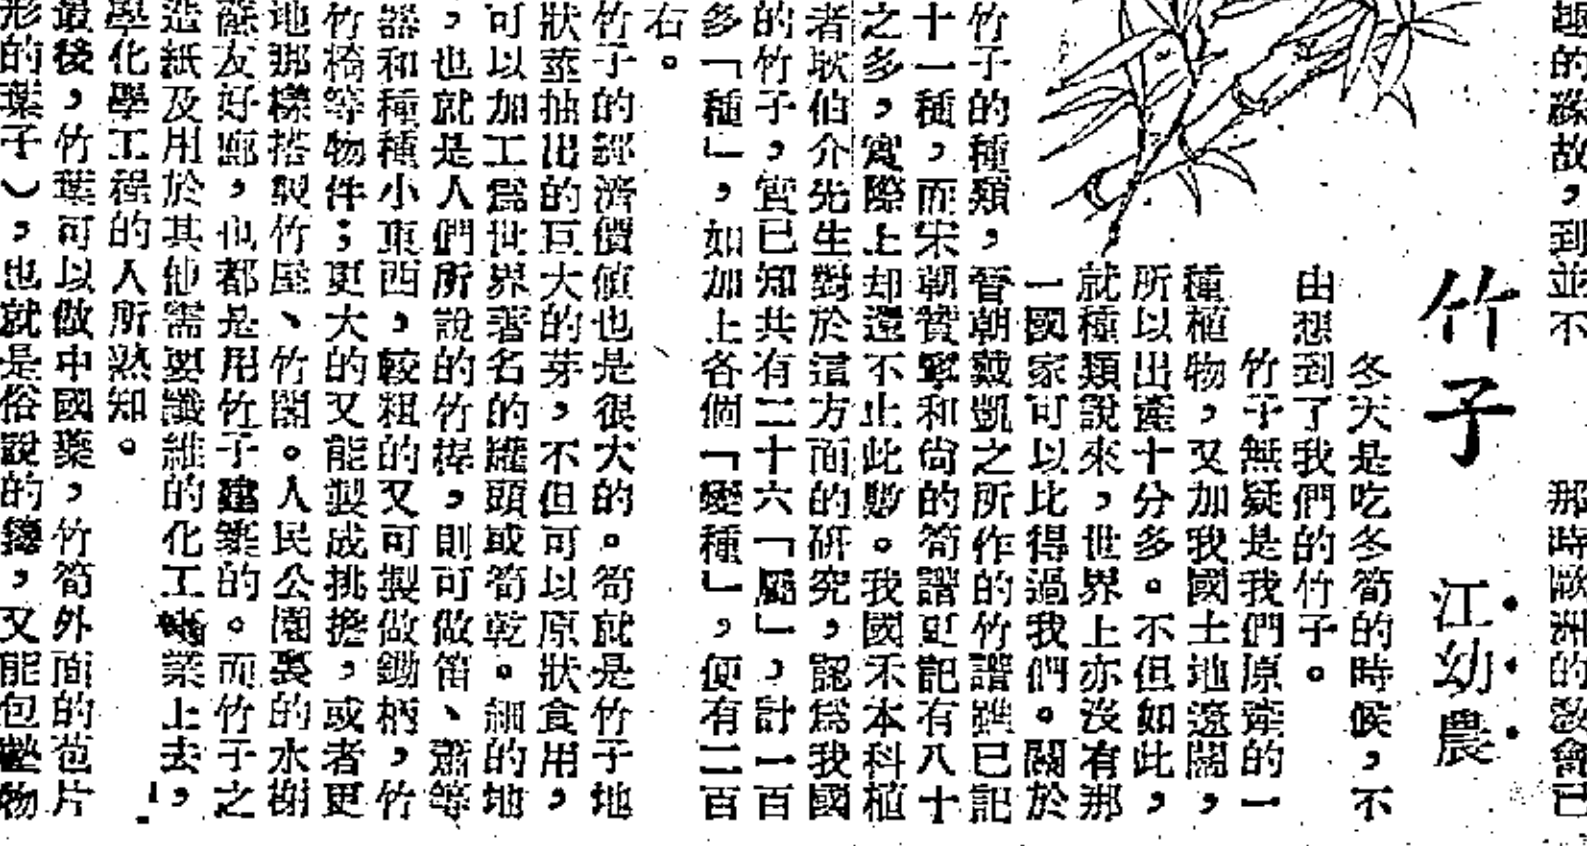 趣的緣故，到並不
那時歐洲的教會已
竹子
江幼農
冬天是吃冬筍的時候，不
由想到了我們的竹子。
竹子無疑是我們原產的一
種植物，又加我國土地遼闊，
所以出產十分多。不但如此，
就種類說來，世界上亦沒有那
一國家可以比得過我們。關於
竹子的種類，晉朝戴凱之所作的竹譜雖已記
十一種，而宋朝贊寧和尚的筍譜更記有八十
之多，實際上却還不止此數。我國禾本科植
者耿伯介先生對於這方面的研究，認爲我國
的竹子，宣已知共有二十六「屬」，計一百
多「種」，如加上各個「變種」，便有二百
右。
竹子的經濟價值也是很大的。筍就是竹子地
狀莖抽出的巨大的芽，不但可以原狀食用，
可以加工爲世界著名的罐頭或筍乾。細的地
，也就是人們所說的竹桿，則可做笛、蕭等
器和種種小東西，較粗的又可製做鋤柄，竹
竹椅等物件；更大的又能製成挑擔，或者更
地那樣搭製竹屋、竹閣。人民公園裏的水榭
蘇友好廊，也都是用竹子建築的。而竹子之
造紙及用於其他需要纖維的化工業上去，
學化學工程的人所熟知。
最後，竹葉可以做中國藥，竹筍外面的苞片
形的葉子），也就是俗說的籜，又能包墊物